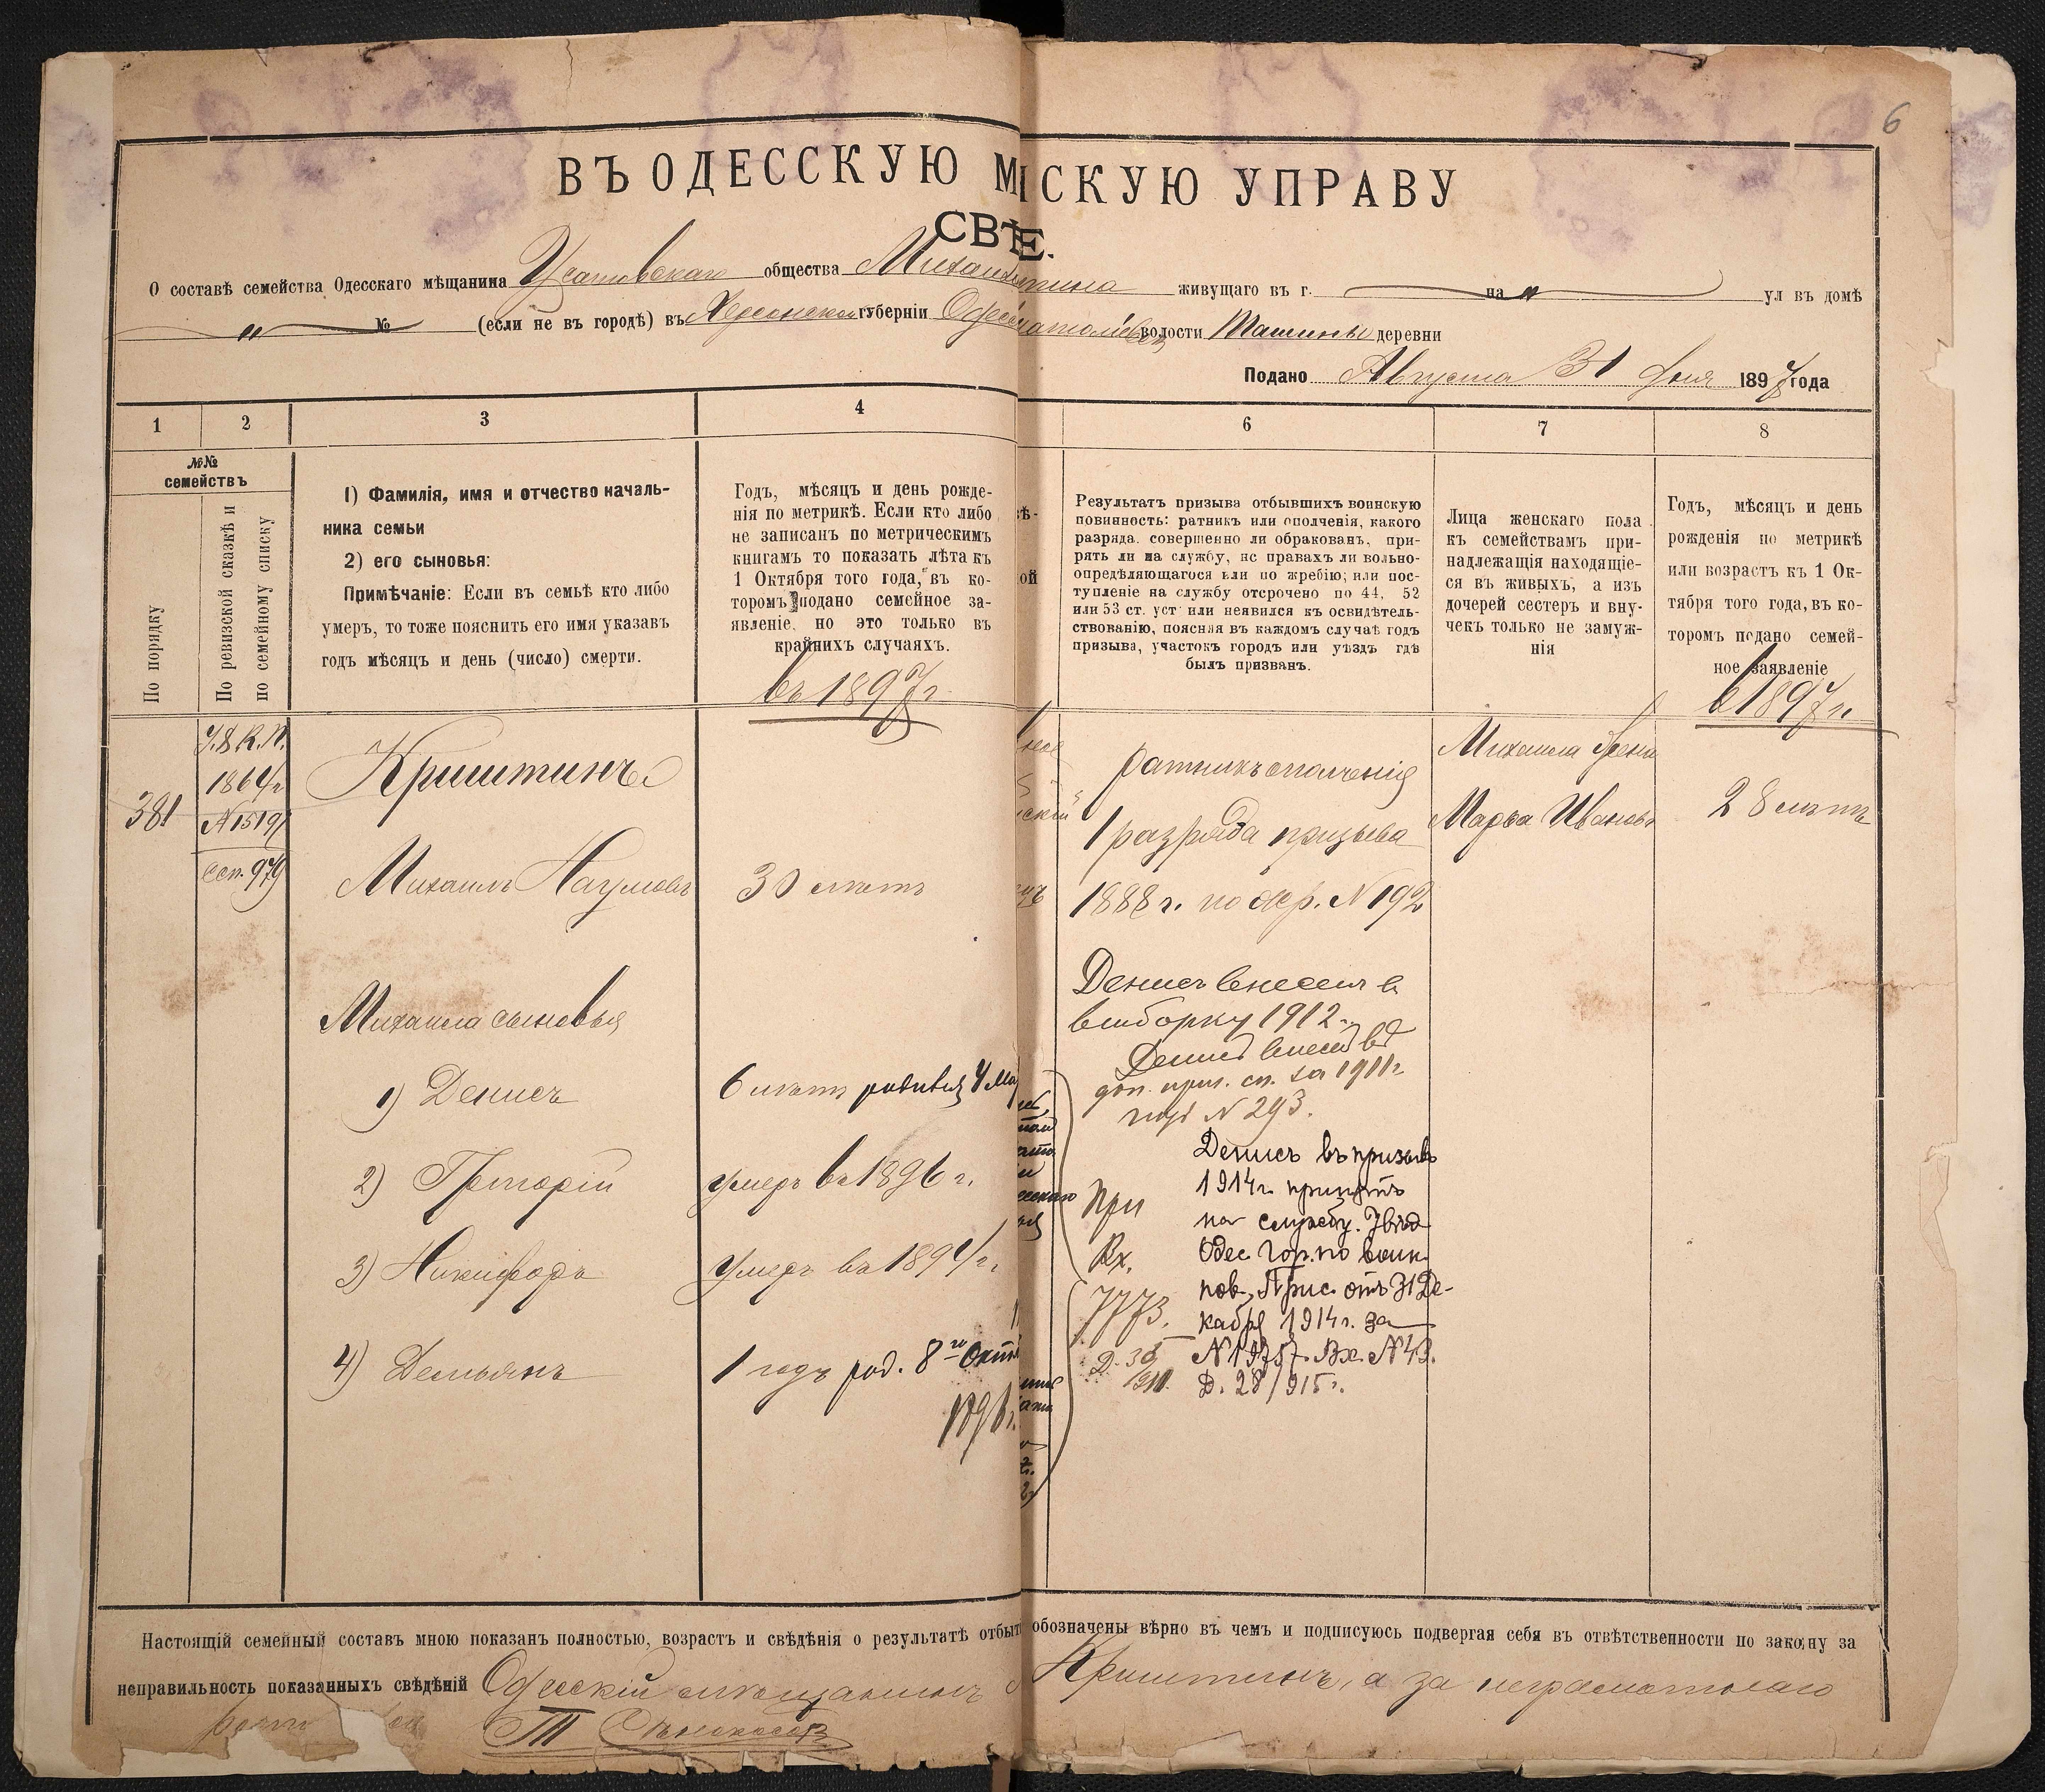 6
ВЪ ОДЕССКУЮ М СКУЮ УПРАВУ
СВѢ Е.
О составѣ семейства Одесскаго мѣщанина Усатовскаго общества Михаи тина живущаго въ г. на „ ул въ домѣ
„ № (если не въ городѣ) въ Херсонской губерніи волости деревни
Подано Августа 31 дня 1897 года
1 2 3 4 6 7 8
№№ семействъ
По порядку
По ревизской сказкѣ и
по семейному списку
1) Фамилія, имя и отчество началь-
ника семьи
2) его сыновья:
Примѣчаніе: Если въ семьѣ кто либо
умеръ, то тоже пояснить его имя указавъ
годъ мѣсяцъ и день (число) смерти.
Годъ, мѣсяцъ и день рожде-
нія по метрикѣ. Если кто либо
не записанъ по метрическимъ
книгамъ то показать лѣта къ
1 Октября того года, въ ко-
торомъ подано семейное за-
явленіе, но это только въ
крайнихъ случаяхъ.
въ 1897 г.
ѣ-
ой
Результатъ призыва отбывшихъ воинскую
повинность: ратникъ или ополченія, какого
разряда. совершенно ли обракованъ, при-
рять ли на службу, нс правахъ ли вольно-
опредѣляющагося или по жребію; или пос-
тупленіе на службу отсрочено по 44, 52
или 53 ст. уст или неявился къ освидѣтель-
ствованію, поясняя въ каждомъ случаѣ годъ
призыва, участокъ городъ или уѣздъ гдѣ
былъ призванъ.
Лица женскаго пола
къ семействамъ при-
надлежащія находящіе-
ся въ живыхъ, а изъ
дочерей сестеръ и вну-
чекъ только не замуж-
нія
Годъ, мѣсяцъ и день
рожденія по метрикѣ
или возрастъ къ 1 Ок-
тября того года, въ ко-
торомъ подано семей-
ное заявленіе
в 1897 г.
381
1864 г
№ 1519
сп. 979
Криштинъ
Михаилъ Наумовъ
30 лѣтъ
ратникъ ополченія
1 разряда призыва
1888 г. по жер. № 192
Михаила жена
Марья Иванова
28 лѣтъ
Михаила сыновья
1) Денисъ
6 лѣтъ родился 4 Ма
2) Григорій
умеръ въ 1896 г.
3) Никифоръ
умеръ въ 1894 г.
4) Демьянъ
1 годъ род. 8го Октя
1896 г.
Денисъ внесенъ в
выборку 1912
Денис внесен въ
доп. приз. сп. за 1911 г
под № 293.
При
Вх.
7773.
Денисъ въ призывъ
1914 г. принятъ
на службу. Увѣд
Одес Гор. по воин.
пов. Прис. отъ 31 Де-
кабря 1914 г. за
№ 19757. Вх. № 43.
Д. 28/915 г.
Настоящій семейный составъ мною показанъ полностью, возрастъ и свѣдѣнія о результатѣ отбыт обозначены вѣрно въ чемъ и подписуюсь подвергая себя въ отвѣтственности по закону за
неправильность показанныхъ свѣдѣній Одесскій мѣщанинъ Криштинъ, а за неграмотнаго